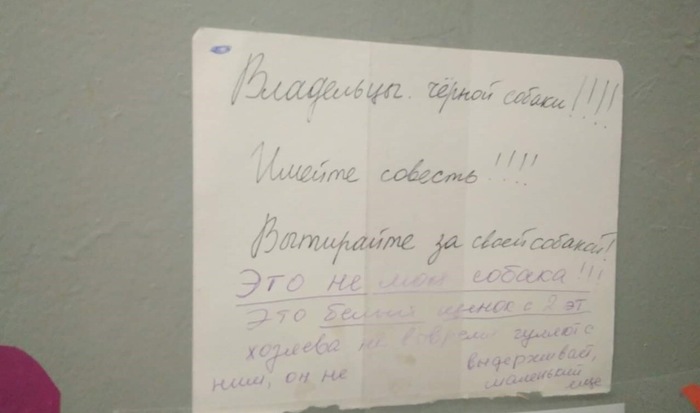 Владельцы чёрной собаки!!!!
Имейте совесть!!!!
Вытирайте за своей собакой!
Это не моя собака!!!
Это белый щенок с 2 эт
хозяева не вовремя гуляют с
ним, он не выдерживает,
маленький еще